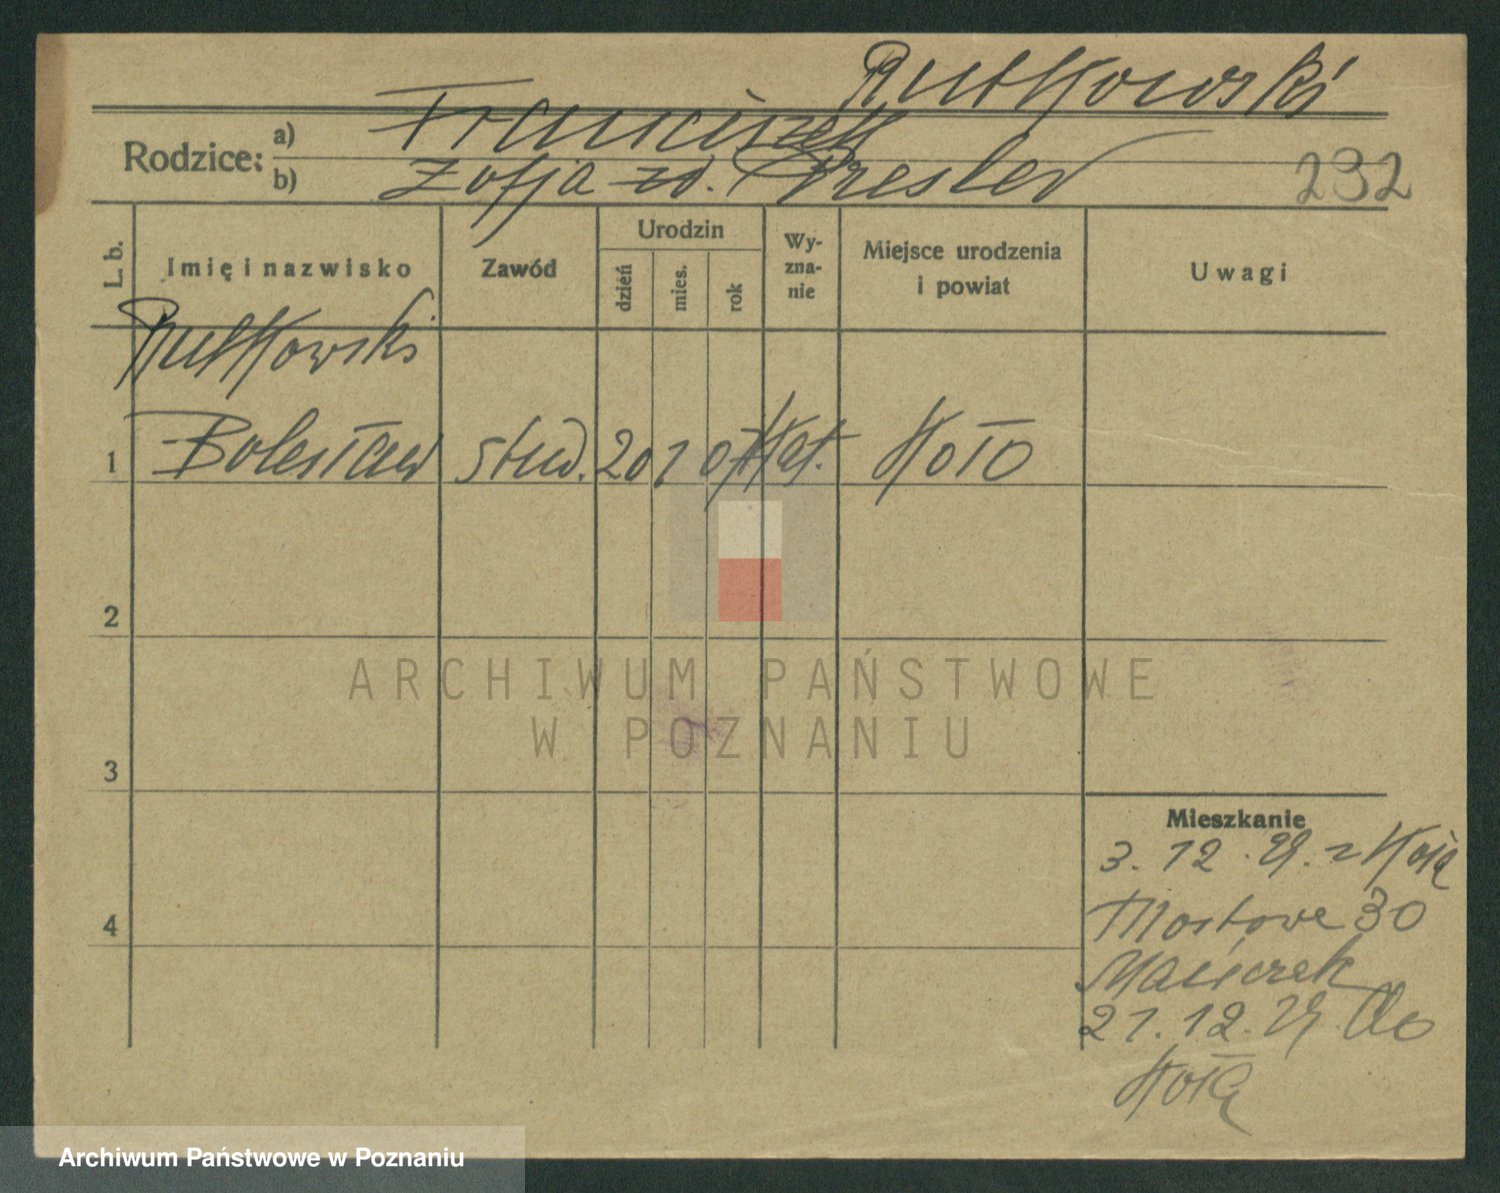 Rutkowski
Rodzice: a) Franciszek
b) Zofja zd. Presler
232
L. b. Imię i nazwisko Zawód Urodzin dzień mies. rok Wy-zna-nie Miejsce urodzenia i powiat Uwagi
Rutkowski
1 Bolesław stud. 20 1 07 kat. Koło
2
ARCHIWUM PAŃSTWOWE
W POZNANIU
3
Mieszkanie
3. 12. 29. z Koła
4
Mostowa 30
21. 12. 29. do
Koła
Archiwum Państwowe w Poznaniu